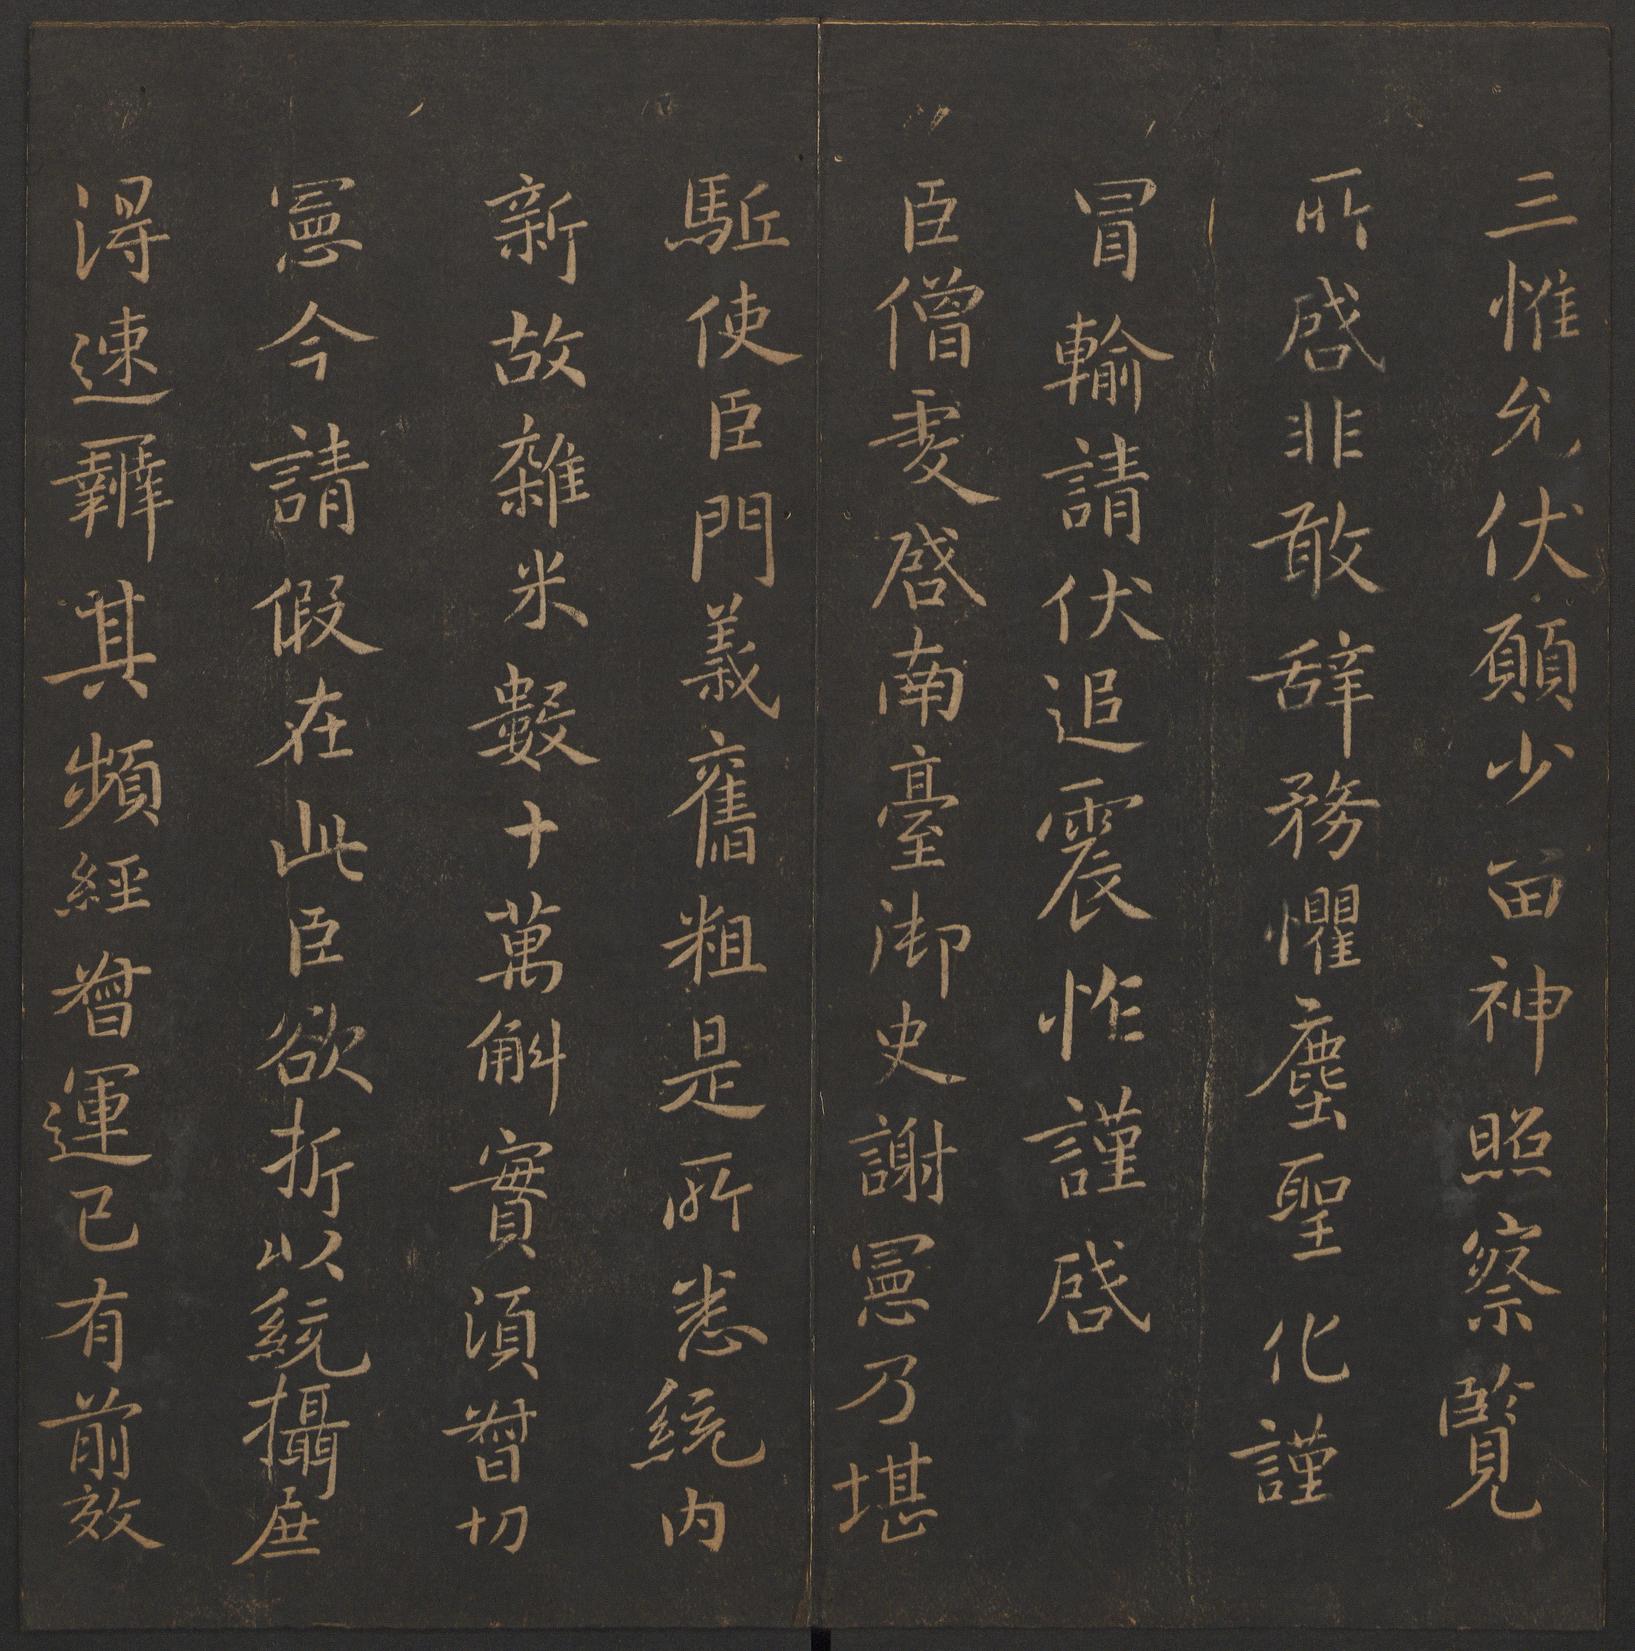 三惟允伏願少留神照察覽
所啓非敢辞務懼塵聖化謹
冒輸請伏追震怍謹啓
臣僧虔啓南臺御史謝憲乃堪
駈使臣門義舊粗是所悉統内
新故雜米數十萬斛實須督切
憲今請假在此臣欲折以統攝庶
得速辦其頻經督運已有前效